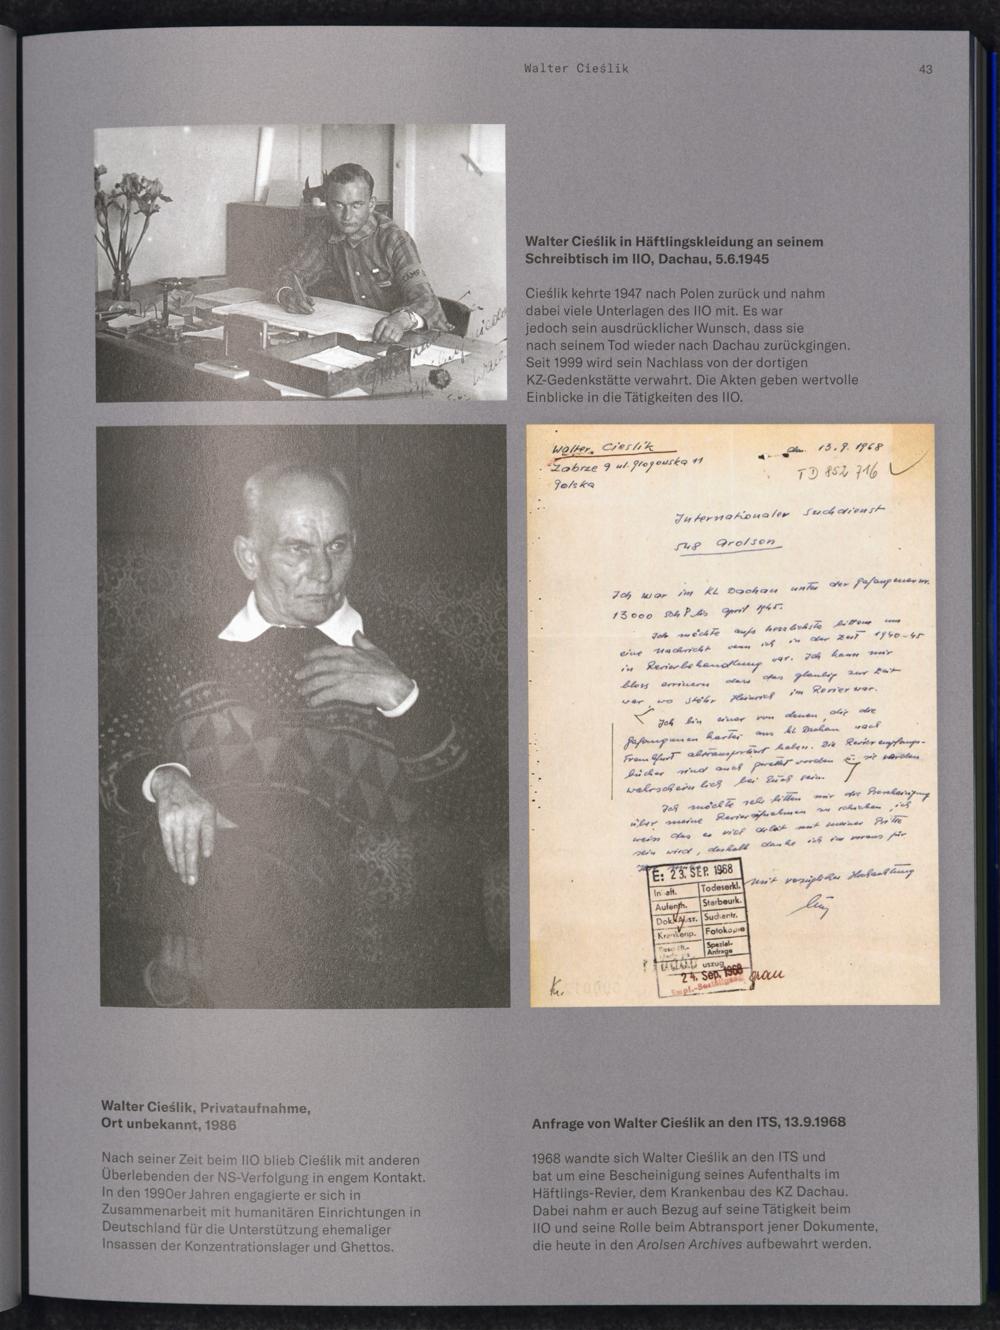 Walter Cieślik
43
CAMP
Walter Cieślik in Häftlingskleidung an seinem
Schreibtisch im IIO, Dachau, 5.6.1945
Cieślik kehrte 1947 nach Polen zurück und nahm
dabei viele Unterlagen des IIO mit. Es war
jedoch sein ausdrücklicher Wunsch, dass sie
nach seinem Tod wieder nach Dachau zurückgingen.
Seit 1999 wird sein Nachlass von der dortigen
KZ-Gedenkstätte verwahrt. Die Akten geben wertvolle
Einblicke in die Tätigkeiten des IIO.
Walter Cieslik
Zabrze 9 ul. grogowska 11
Polska
den 13.9.1968
TD 852 716
Internationaler Suchdienst
548 Arolsen
Ich war im KL Dachau unter der gefangenennr.
13000 Sch P bis april 1945.
Ich möchte aufs herzlichste bitten um
eine nachricht wenn ich in der Zeit 1940-45
in Revierbehandlung war. Ich kann mir
bloss erinnern dass das glaubig zur Zeit
war wo Stöhr Heinrich im Revier war.
Ich bin einer von denen, die die
gefangenen kartei aus KL Dachau nach
Frankfurt abtransportiert haben. Die Revierempfangs-
bücher sind auch gerettet worden sie werden
wahrscheinlich bei Euch sein.
Ich möchte sehr bitten mir die Bescheinigung
über meine Revieraufnahmen zu schicken, ich
weiss das es viel arbeit mit meiner Bitte
sein wird, deshalb danke ich im voraus für
mit vorzüglicher Hochachtung
E: 23. SEP. 1968
Inhaft. Todeserkl.
Aufenth. Sterbeurk.
Dok. Ausz. Suchantr.
Krankenp. Fotokopie
Spezial-
Anfrage
24. Sep. 1968
grau
Kr.
Walter Cieślik, Privataufnahme,
Ort unbekannt, 1986
Nach seiner Zeit beim IIO blieb Cieślik mit anderen
Überlebenden der NS-Verfolgung in engem Kontakt.
In den 1990er Jahren engagierte er sich in
Zusammenarbeit mit humanitären Einrichtungen in
Deutschland für die Unterstützung ehemaliger
Insassen der Konzentrationslager und Ghettos.
Anfrage von Walter Cieślik an den ITS, 13.9.1968
1968 wandte sich Walter Cieślik an den ITS und
bat um eine Bescheinigung seines Aufenthalts im
Häftlings-Revier, dem Krankenbau des KZ Dachau.
Dabei nahm er auch Bezug auf seine Tätigkeit beim
IIO und seine Rolle beim Abtransport jener Dokumente,
die heute in den Arolsen Archives aufbewahrt werden.